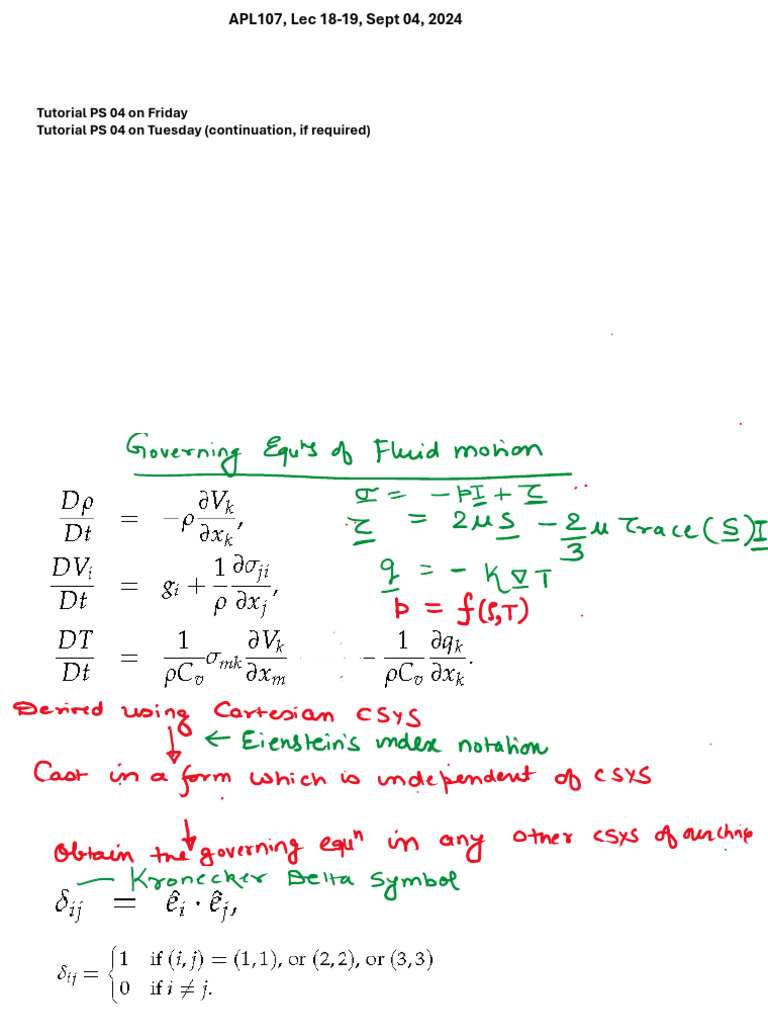 APL107, Lec 18-19, Sept 04, 2024
Tutorial PS 04 on Friday
Tutorial PS 04 on Tuesday (continuation, if required)
Governing Equ^ns of Fluid motion
Dρ/Dt = −ρ ∂V_k/∂x_k,
σ = −pI + τ
τ = 2μS − 2/3 μ Trace(S)I
DV_i/Dt = g_i + 1/ρ ∂σ_ji/∂x_j,
q = −K∇T
p = f(ρ,T)
DT/Dt = 1/(ρC_v) σ_mk ∂V_k/∂x_m − 1/(ρC_v) ∂q_k/∂x_k.
Derived using Cartesian CSYS
↓ ← Eienstein's index notation
Cast in a form which is independent of CSYS
↓
Obtain the governing equ^n in any other CSYS of our choice
Kronecker Delta Symbol
δ_ij = ê_i · ê_j,
δ_ij = { 1 if (i, j) = (1, 1), or (2, 2), or (3, 3)
0 if i ≠ j.